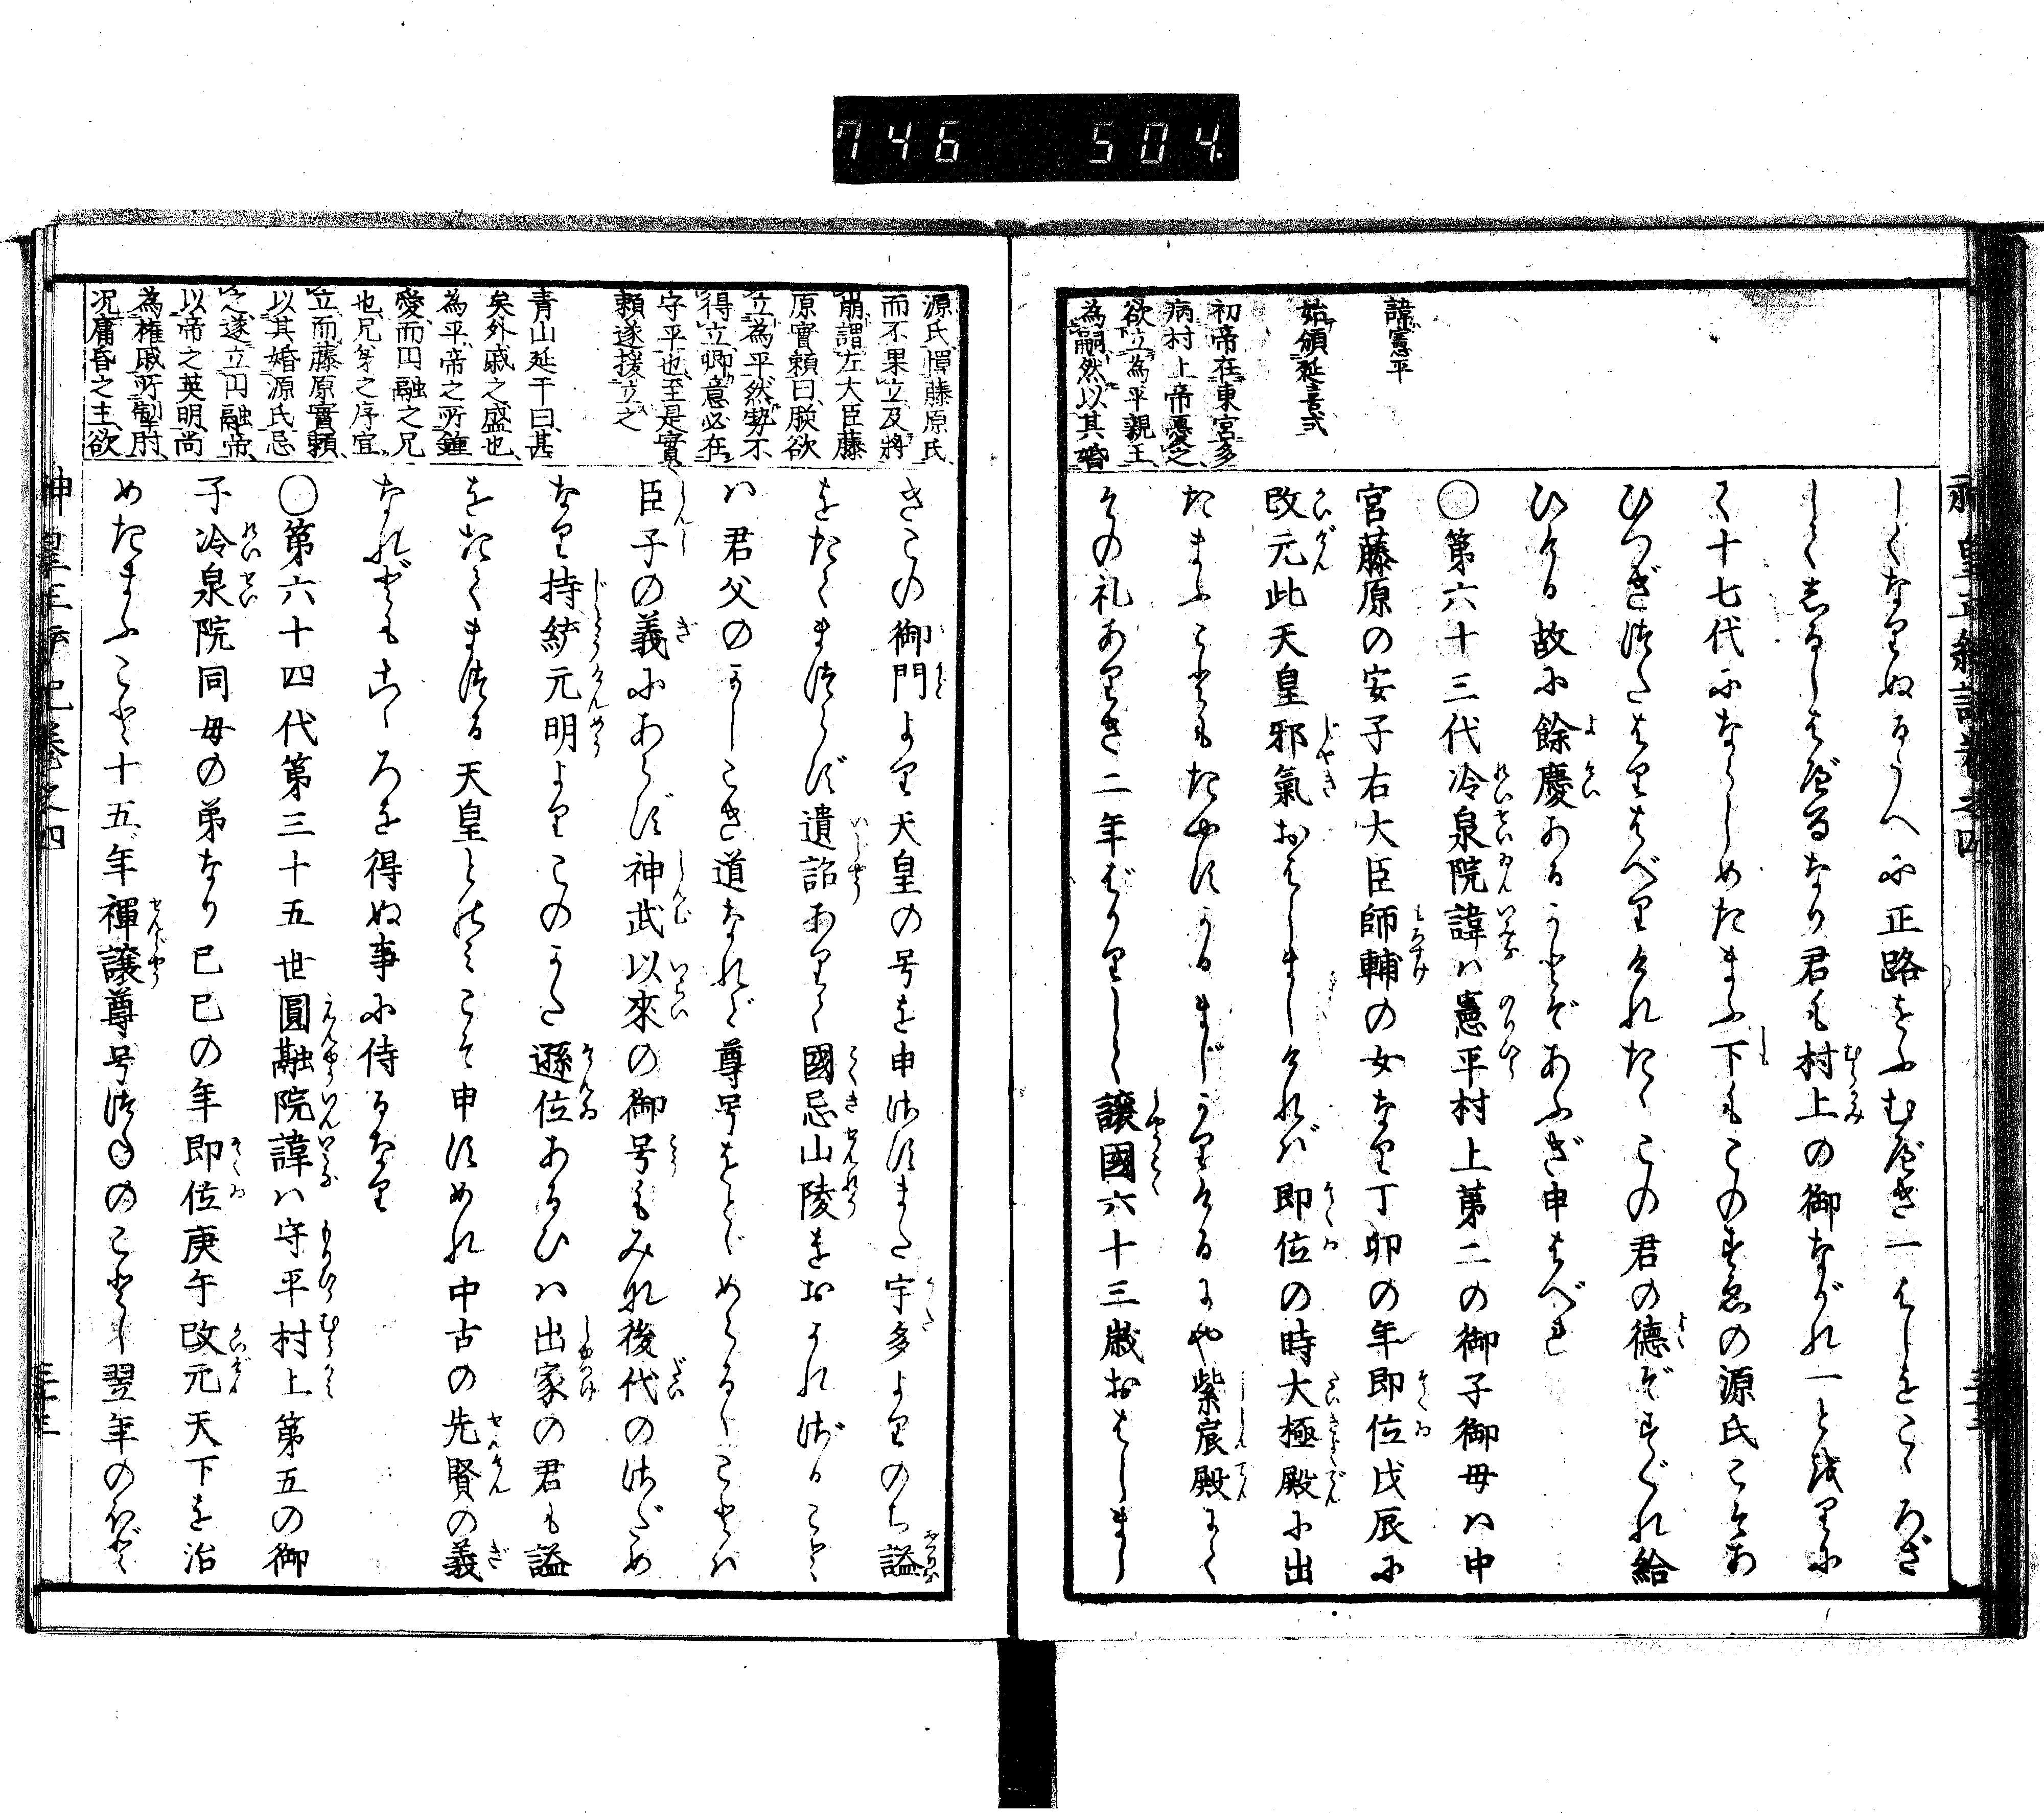 746 504.
諱憲平
始頒延喜式
初帝在東宮多
病村上帝憂之
欲立為平親王
為嗣然以其婚
しくなりぬるうへに正路をふむべき一はしをこゝろざ
しくしるしはべるなり君も村上の御ながれ一とほりに
て十七代にならしめたまふ下もこのすゑの源氏こそあ
ひつぎつたはりはべりけれたゞこの君の徳ぞすぐれ給
ひける故に餘慶あるかとぞあふぎ申はべれ
〇第六十三代冷泉院諱ハ憲平村上第二の御子御母ハ中
宮藤原の安子右大臣師輔の女なり丁卯の年即位戊辰に
改元此天皇邪氣おはしましければ即位の時大極殿に出
たまふこともたやすかるまじかりけるにや紫宸殿にて
その礼ありき二年ばかりして讓國六十三歳おはしまし
源氏憚藤原氏
而不果立及將
崩謂左大臣藤
原實頼曰朕欲
立為平然勢不
得立卿意必在
守平也至是實
頼遂援立之
青山延于曰甚
矣外戚之盛也
為平帝之所鍾
愛而円融之兄
也兄弟之序宜
立而藤原實頼
以其婚源氏忌
之遂立円融帝
以帝之英明尚
為權戚所掣肘
况庸昏之主欲
きこの御門より天皇の号を申さずまた宇多よりのち謚
をたてまつらず遺詔ありて國忌山陵をおかれざることは
ハ君父のかしこき道なれど尊号をとゞめらるゝことハ
臣子の義にあらず神武以來の御号もみな後代のさだめ
なり持統元明よりこのかた遜位あるひハ出家の君も謚
をたてまつる天皇とのみこそ申すめれ中古の先賢の義
なれどもこゝろを得ぬ事に侍るなり
〇第六十四代第三十五世圓融院諱ハ守平村上第五の御
子冷泉院同母の弟なり己巳の年即位庚午改元天下を治
めたまふこと十五年禪讓尊号つねのことし翌年のほど
神皇正統記巻之四